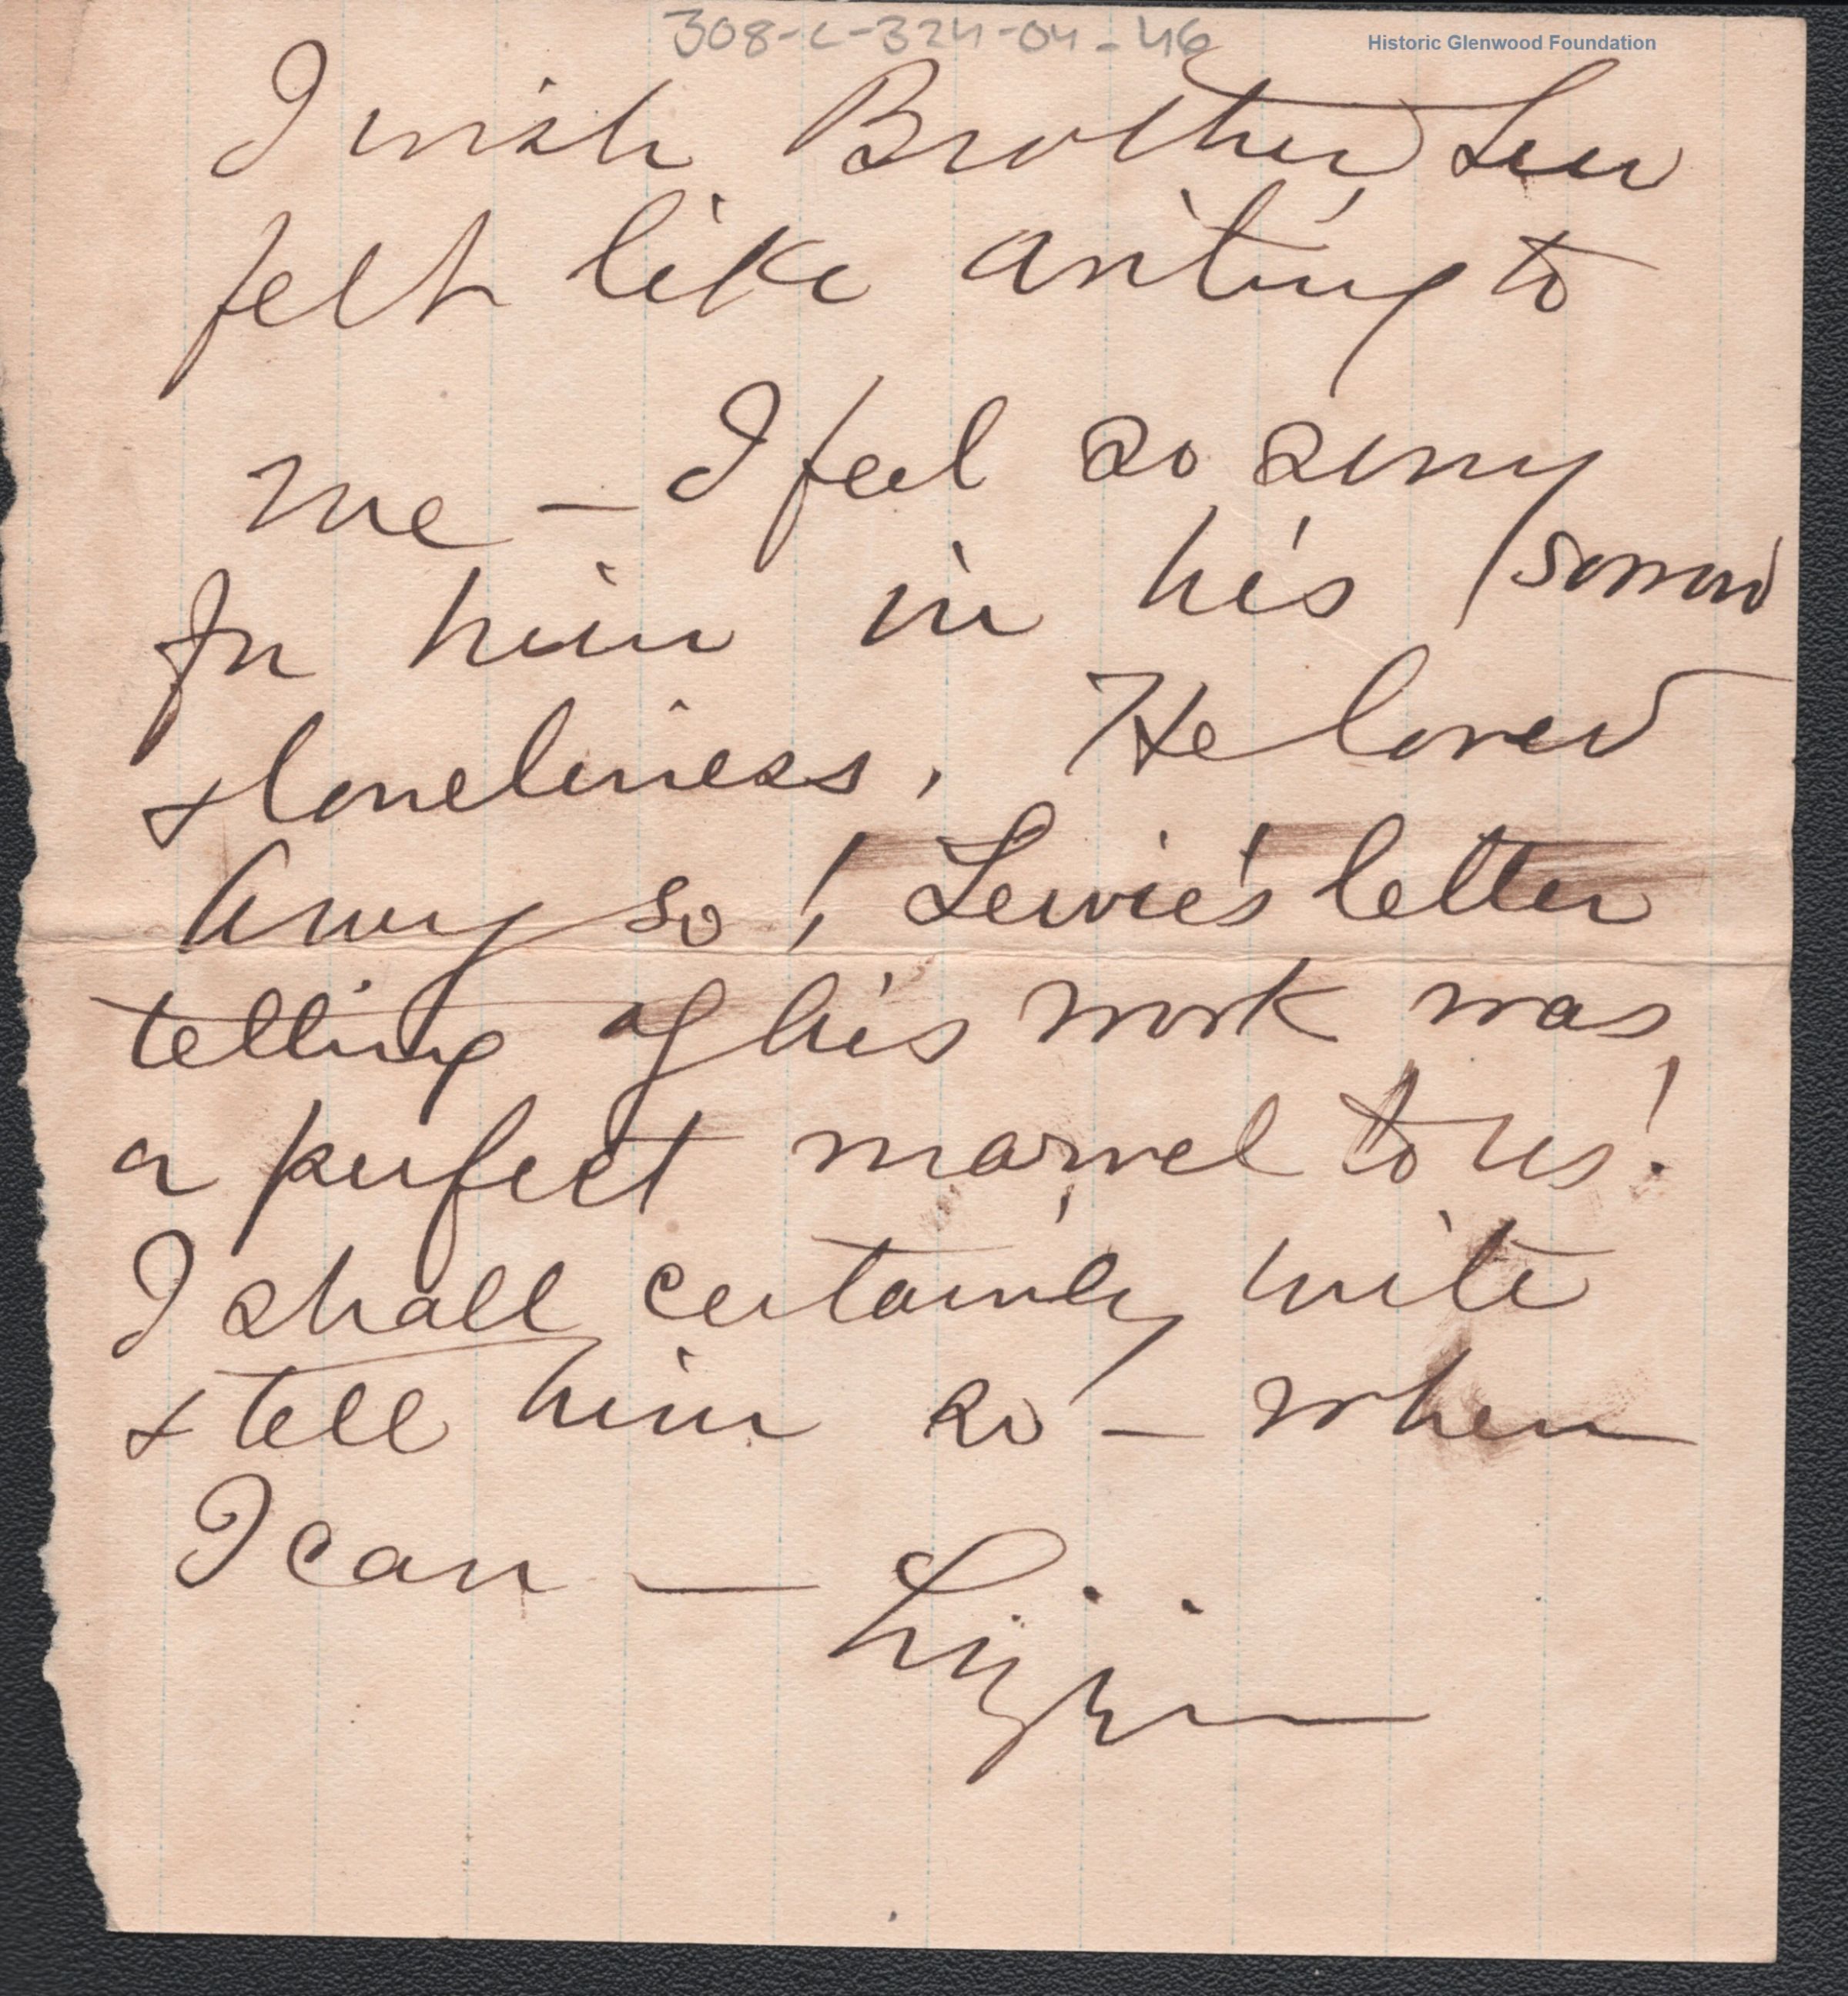 308-C-324-04-46
Historic Glenwood Foundation
I wish Brother Lew
felt like writing to
me — I feel so sorry
for him in his sorrow
& loneliness. He loved
Amy so! Lewie's letter
telling of his work was
a perfect marvel to us!
I shall certainly write
& tell him so — when
I can —
Lizzie